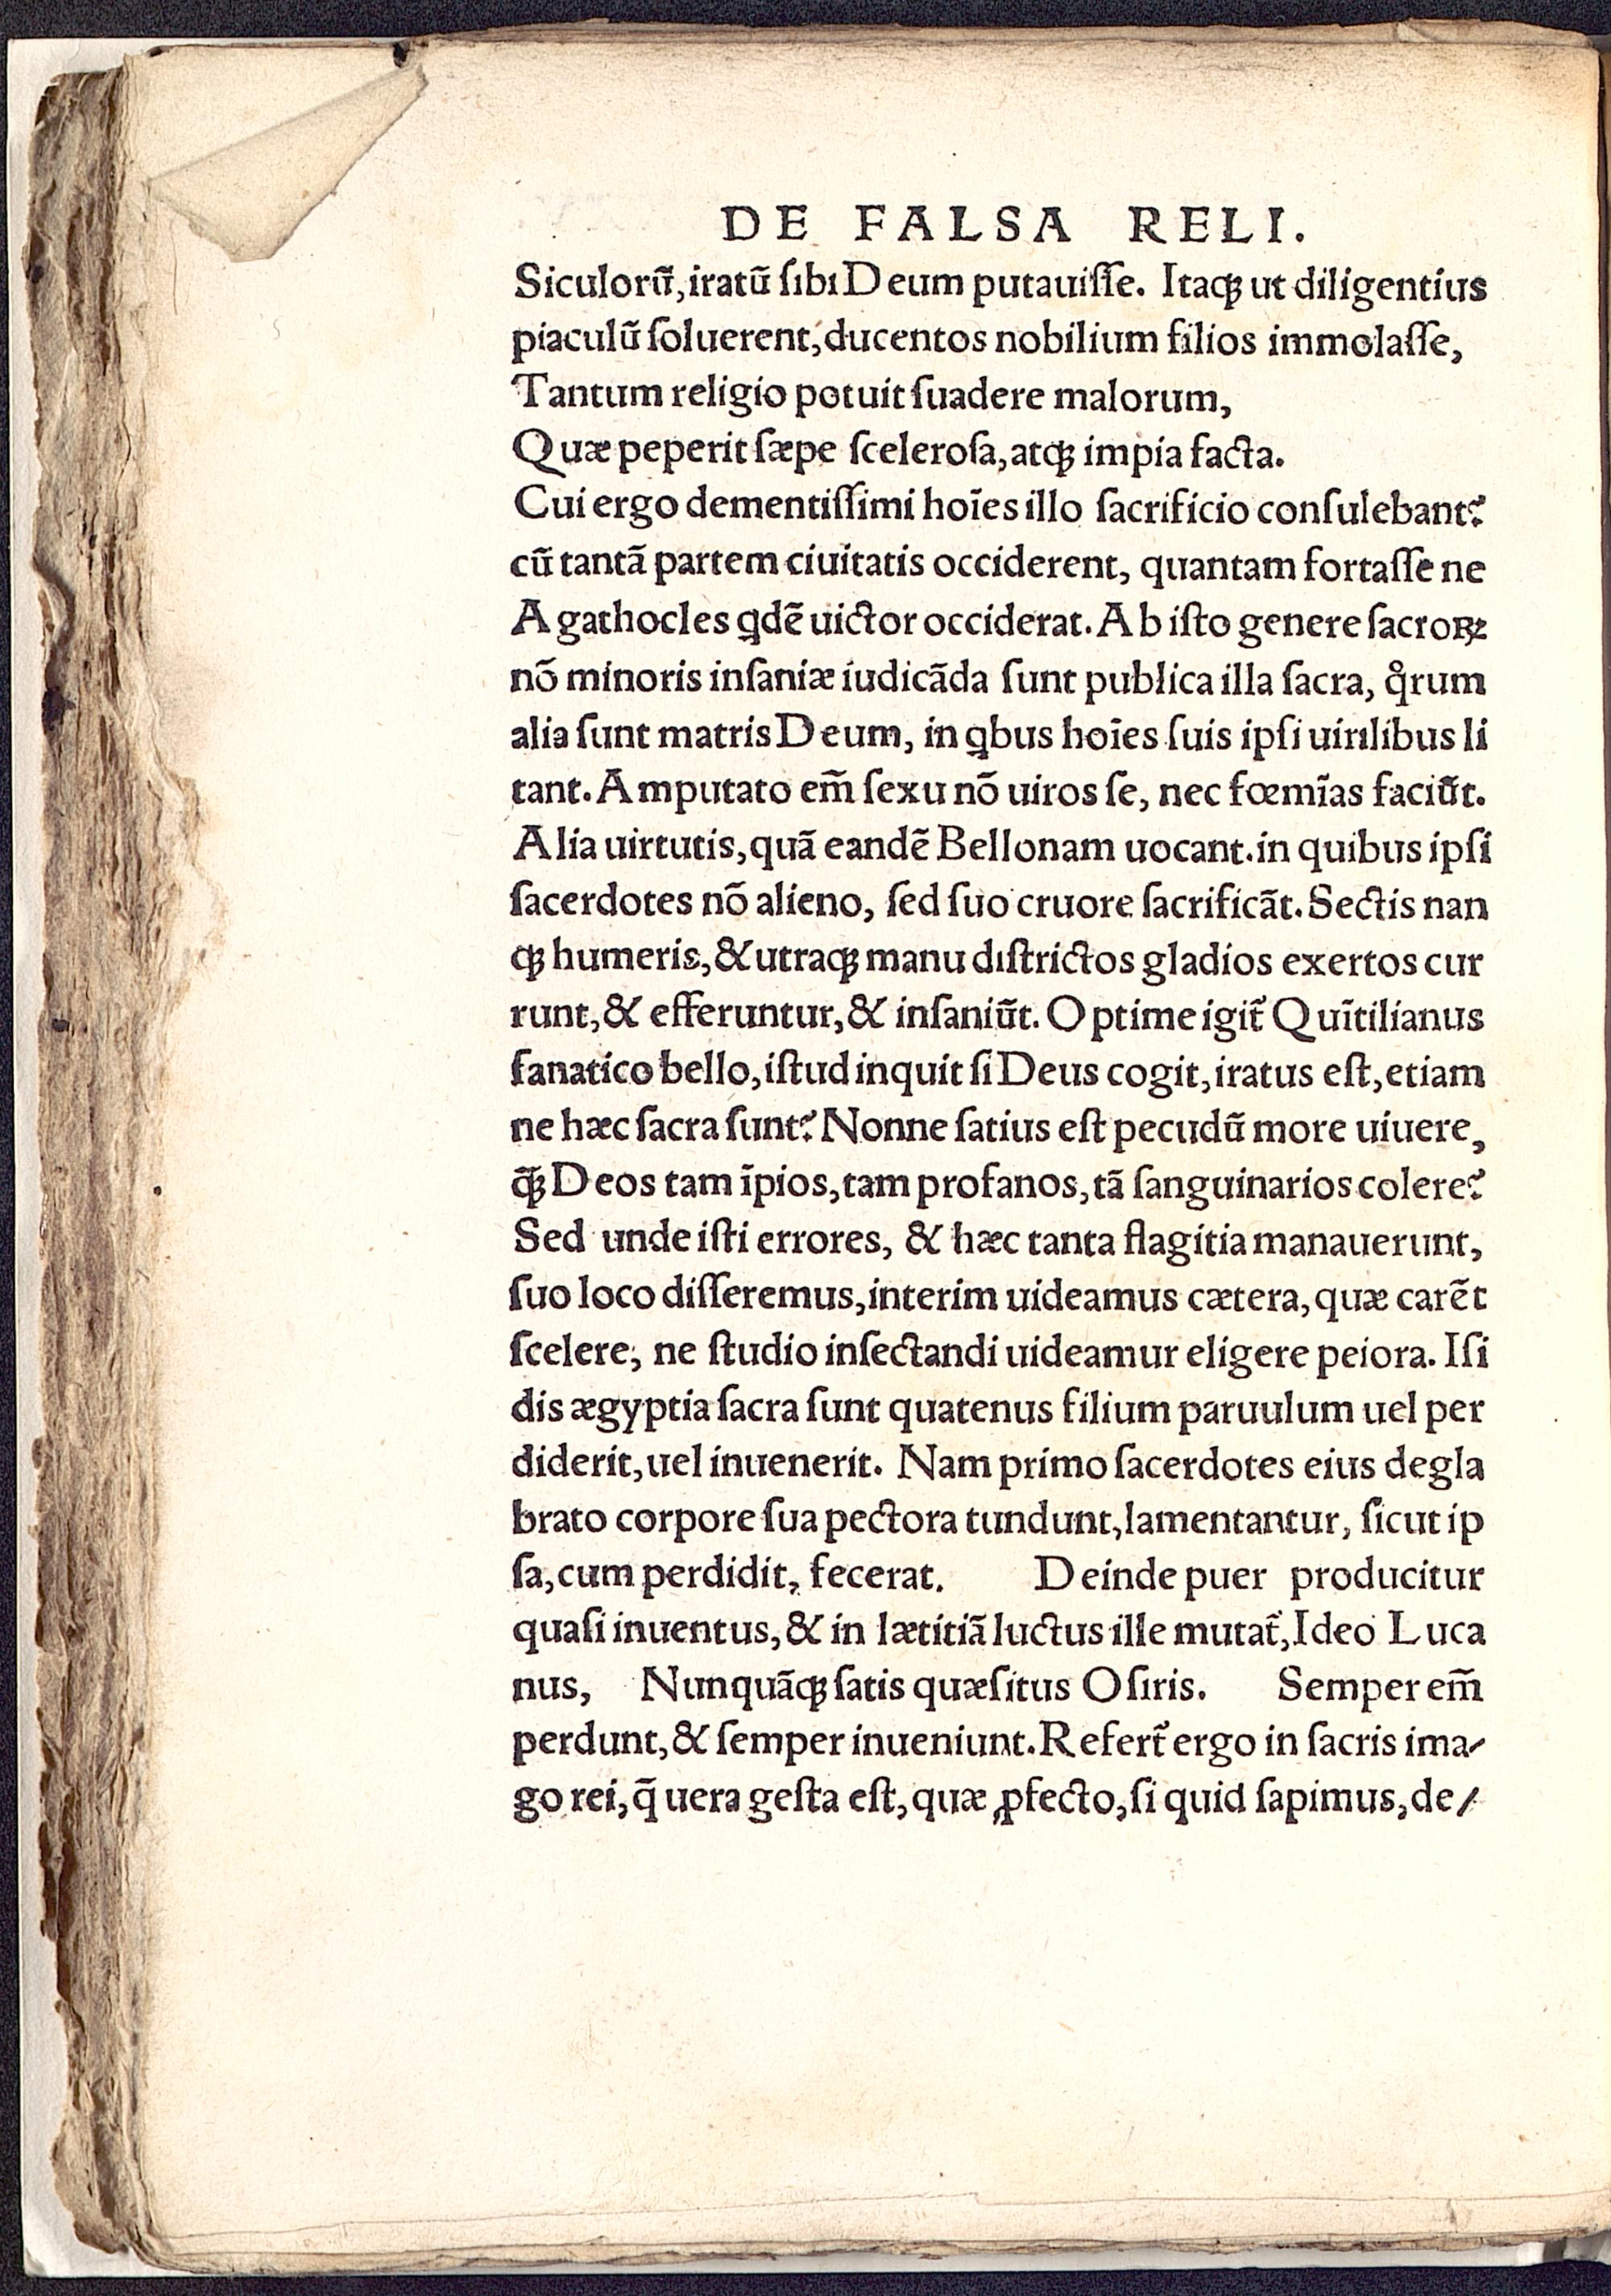 DE FALSA RELI.
Siculorũ, iratũ ſibi Deum putauiſſe. Itaqꝫ ut diligentius
piaculũ ſoluerent, ducentos nobilium filios immolaſſe,
Tantum religio potuit ſuadere malorum,
Quæ peperit ſæpe ſceleroſa, atqꝫ impia facta.
Cui ergo dementiſſimi hoĩes illo ſacrificio conſulebant?
cũ tantã partem ciuitatis occiderent, quantam fortaſſe ne
Agathocles ꝗdẽ uictor occiderat. Ab iſto genere ſacroꝝ
nõ minoris inſaniæ iudicãda ſunt publica illa ſacra, qͦrum
alia ſunt matris Deum, in ꝗbus hoĩes ſuis ipſi uirilibus li
tant. Amputato em̃ ſexu nõ uiros ſe, nec fœmĩas faciũt.
Alia uirtutis, quã eandẽ Bellonam uocant. in quibus ipſi
ſacerdotes nõ alieno, ſed ſuo cruore ſacrificãt. Sectis nan
qꝫ humeris, & utraqꝫ manu diſtrictos gladios exertos cur
runt, & efferuntur, & inſaniũt. Optime igit̃ Quĩtilianus
fanatico bello, iſtud inquit ſi Deus cogit, iratus eſt, etiam
ne hæc ſacra ſunt? Nonne ſatius eſt pecudũ more uiuere,
q̃ꝫ Deos tam ĩpios, tam profanos, tã ſanguinarios colere?
Sed unde iſti errores, & hæc tanta flagitia manauerunt,
ſuo loco diſſeremus, interim uideamus cætera, quæ carẽt
ſcelere, ne ſtudio inſectandi uideamur eligere peiora. Iſi
dis ægyptia ſacra ſunt quatenus filium paruulum uel per
diderit, uel inuenerit. Nam primo ſacerdotes eius degla
brato corpore ſua pectora tundunt, lamentantur, ſicut ip
ſa, cum perdidit, fecerat. Deinde puer producitur
quaſi inuentus, & in lætitiã luctus ille mutat̃, Ideo Luca
nus, Nunquãqꝫ ſatis quæſitus Oſiris. Semper em̃
perdunt, & ſemper inueniunt. Refert̃ ergo in ſacris ima-
go rei, q̃ uera geſta eſt, quæ ꝓfecto, ſi quid ſapimus, de-